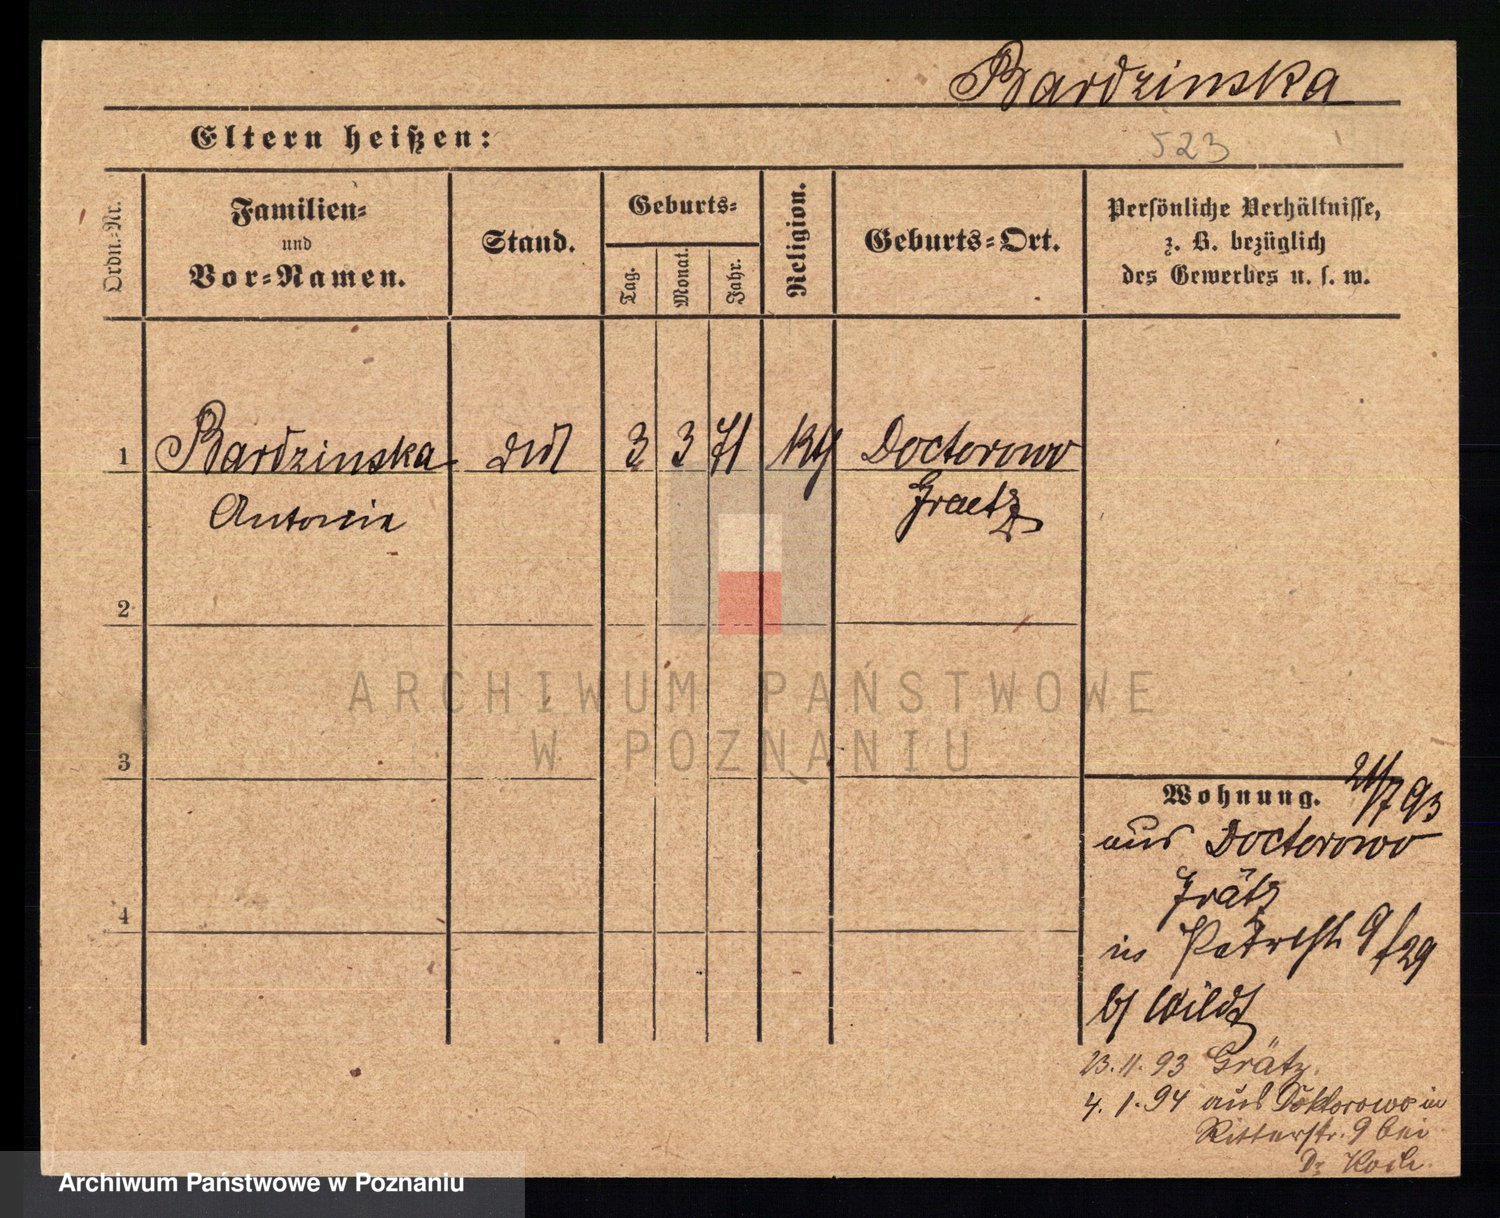 Bardzinska
Eltern heißen:
523
Ordn.=Nr.
Familien=
und
Vor=Namen.
Stand.
Geburts=
Tag.
Monat.
Jahr.
Religion.
Geburts=Ort.
Persönliche Verhältnisse,
z. B. bezüglich
des Gewerbes u. s. w.
1 Bardzinska 3 3 71 Doctorowo
Antonie Graetz
2
ARCHIWUM PAŃSTWOWE
W POZNANIU
3
Wohnung. 21/7 93
aus Doctorowo
Grätz
in Petristr 9
b/ Wildt
4
23.11.93 Grätz.
4.1.94 aus Doktorowo in
Ritterstr. 9 bei
Dr Koch.
Archiwum Państwowe w Poznaniu